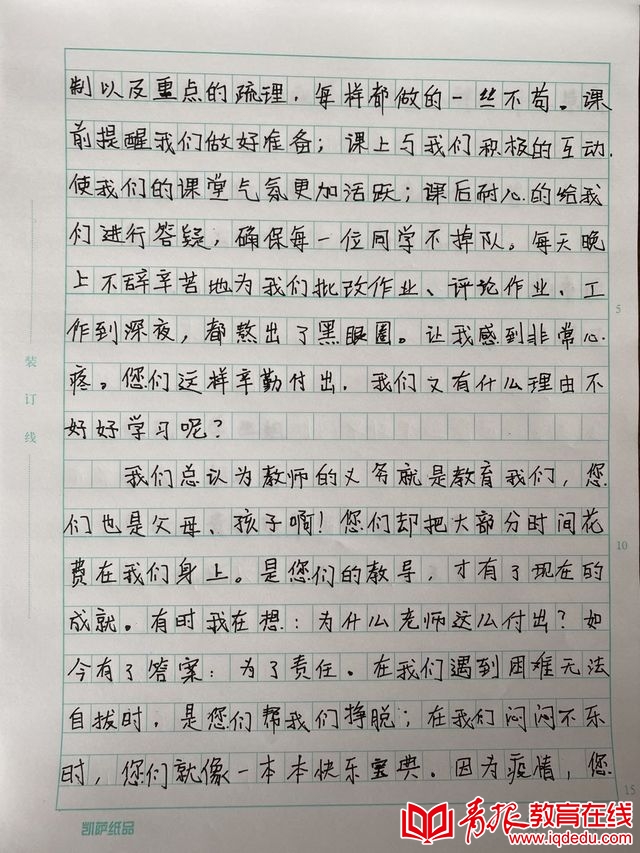 制以及重点的疏理，每样都做的一丝不苟。课
前提醒我们做好准备；课上与我们积极的互动.
使我们的课堂气氛更加活跃；课后耐心的给我
们进行答疑，确保每一位同学不掉队。每天晚
上不辞辛苦地为我们批改作业、评论作业、工
作到深夜，都熬出了黑眼圈。让我感到非常心
疼。您们这样辛勤付出，我们又有什么理由不
好好学习呢？
我们总认为教师的义务就是教育我们，您
们也是父母、孩子啊！您们却把大部分时间花
费在我们身上。是您们的教导，才有了现在的
成就。有时我在想：为什么老师这么付出？如
今有了答案：为了责任。在我们遇到困难无法
自拔时，是您们帮我们挣脱；在我们闷闷不乐
时，您们就像一本本快乐宝典。因为疫情，您
装订线
5
10
15
凯萨纸品
青报教育在线
www.iqdedu.com